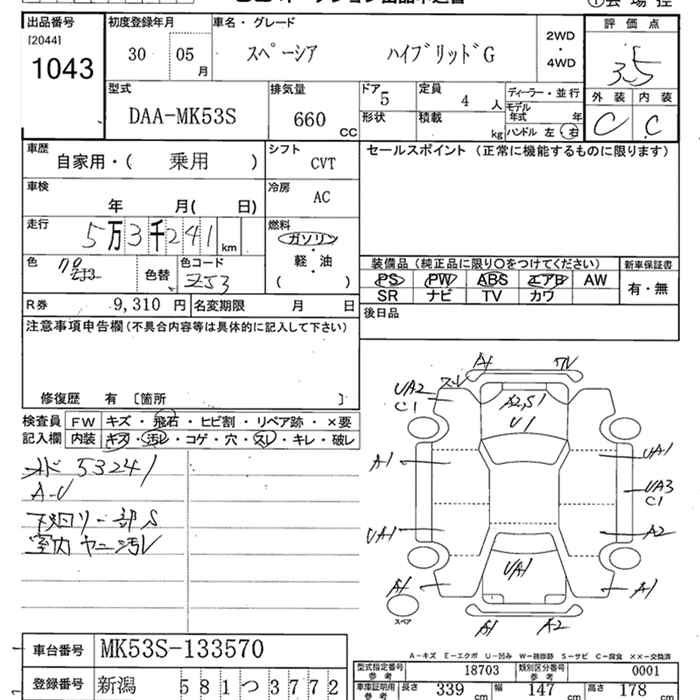 出品番号 初度登録年月 車名・グレード 2WD・4WD 評価点
[2044]
1043 30 05月 スペーシア ハイブリッドG 3.5
外装 内装
C C
型式 排気量 ドア 定員 ディーラー・並行
DAA-MK53S 660CC 5 4人 モデル年式 年
形状 積載 kg ハンドル 左 右
車歴 シフト セールスポイント (正常に機能するものに限ります)
自家用・( 乗用 ) CVT
車検 冷房
年 月( 日) AC
走行 燃料
5万3千241km ガソリン
軽・油
( ・ )
色 色替 色コード 装備品(純正品に限り○をつけてください) 新車保証書
ZJ3 PS PW ABS エアB AW 有・無
R券 9,310円 名変期限 月 日 SR ナビ TV カワ
注意事項申告欄(不具合内容等は具体的に記入して下さい) 後日品
修復歴 有 [箇所 ]
検査員 FW キズ・飛石・ヒビ割・リペア跡・×要
記入欄 内装 キズ・汚レ・コゲ・穴・スレ・キレ・破レ
53241
A-U
下廻リ一部S
室内ヤニ汚レ
A1 ワレ
UA2 スレ
C1
A2,S1
U1
A1 UA1
UA3
C1
UA1 A2
UA1
A1 A1
スペア
A1 A2
A-キズ E-エクボ U-凹み W-補修跡 S-サビ C-腐食 ××-交換済
車台番号 MK53S-133570
型式指定番号 参考 18703 類別区分番号 参考 0001
登録番号 新潟 581つ3772
車庫証明用 参考 長さ 339cm 幅 147cm 高さ 178cm